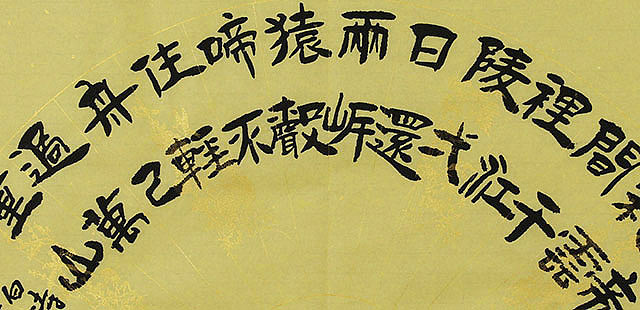 帝
彩雲
間千
裡江
陵弌
日還
兩岸
猿聲
啼不
住輕
舟已
過萬
重山
李
白